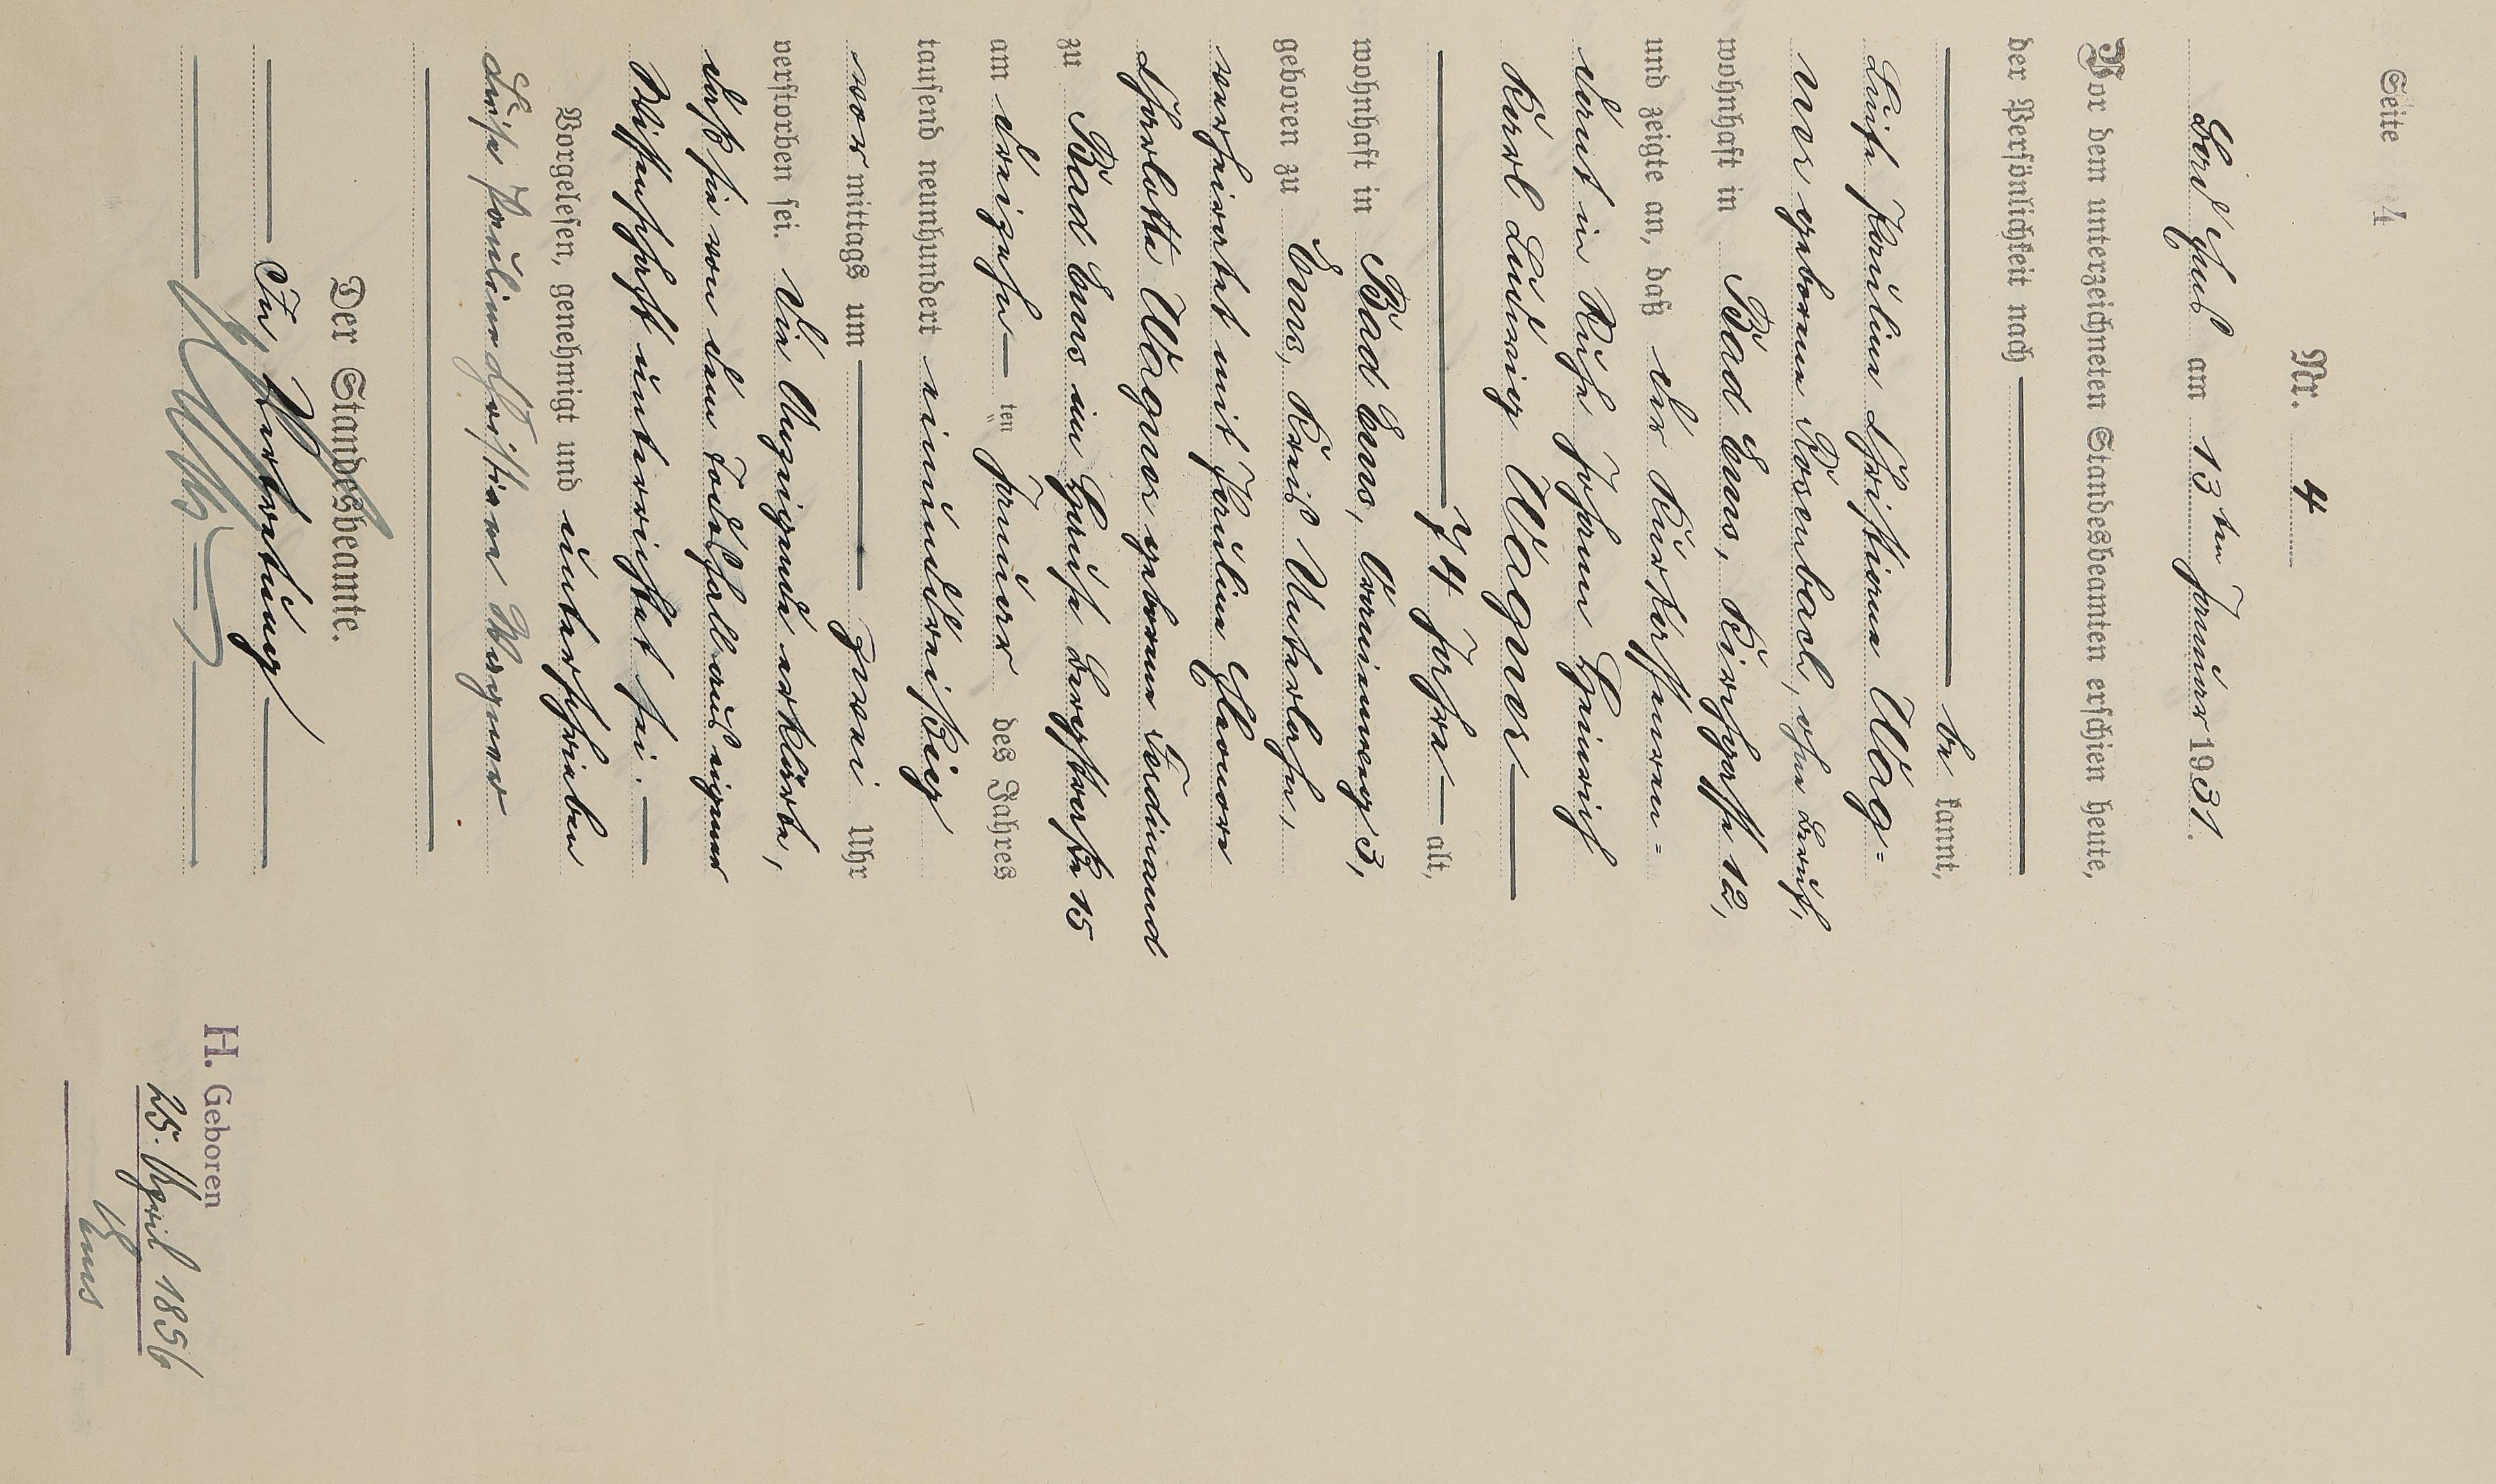 Seite 4
Nr. 4
Bad Ems am 13ten Januar 1931.
Vor dem unterzeichneten Standesbeamten erschien heute,
der Persönlichkeit nach
be kannt,
Luise Pauline Christiane Wag=
ner geborene Rosenbach, ohne Beruf,
wohnhaft in Bad Ems, Kirchgasse 12,
und zeigte an, daß der Kurkassenren=
dant in Ruhe Johann Heinrich
Karl Ludwig Wagner
74 Jahre alt,
wohnhaft in Bad Ems, Braunweg 3,
geboren zu Ems, Kreis Unterlahn,
verheiratet mit Pauline Eleonore
Charlotte Wagner geborene Ferdinand
zu Bad Ems im Hause Bergstraße 15
am dreizehnten Januar des Jahres
tausend neunhundert einunddreißig
vor mittags um zwei Uhr
verstorben sei. Die Anzeigende erklärte,
daß sie von dem Todesfall aus eigener
Wissenschaft unterrichtet sei.
Vorgelesen, genehmigt und unterschrieben
Luise Pauline Christiane Wagner
Der Standesbeamte.
In Vertretung
H. Geboren
25. April 1856
Ems